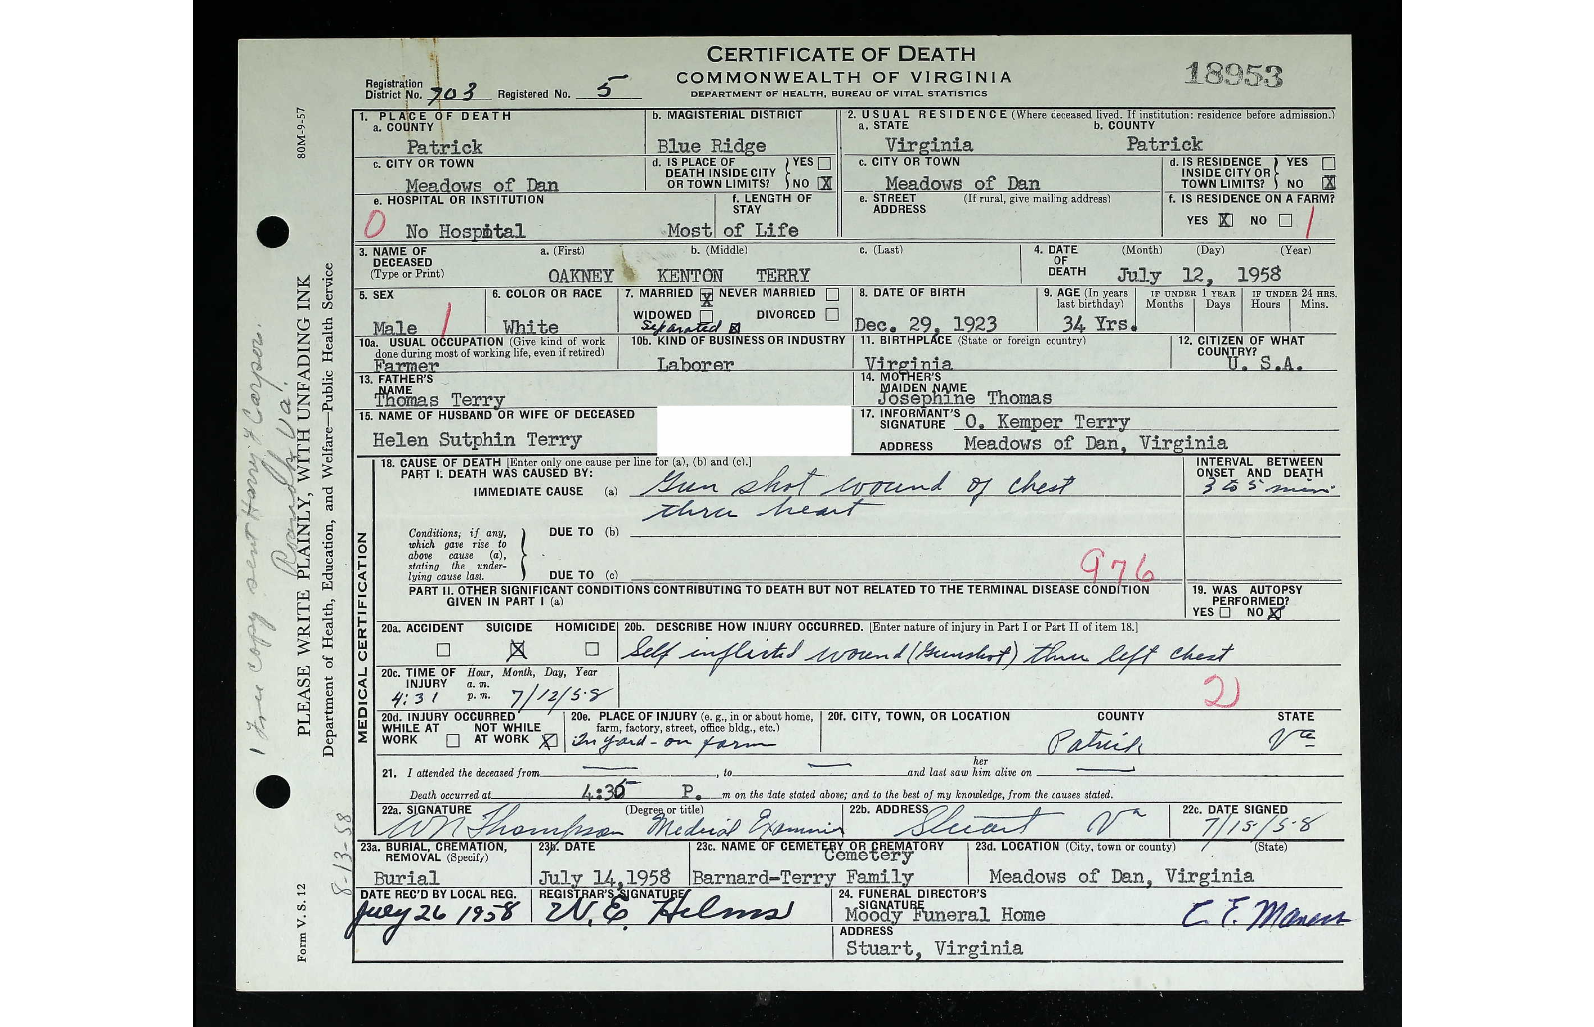 CERTIFICATE OF DEATH
COMMONWEALTH OF VIRGINIA
DEPARTMENT OF HEALTH, BUREAU OF VITAL STATISTICS
18953
Registration District No. 703 Registered No. 5
1. PLACE OF DEATH
a. COUNTY
Patrick
b. MAGISTERIAL DISTRICT
Blue Ridge
2. USUAL RESIDENCE (Where deceased lived. If institution: residence before admission.)
a. STATE
Virginia
b. COUNTY
Patrick
c. CITY OR TOWN
Meadows of Dan
d. IS PLACE OF DEATH INSIDE CITY OR TOWN LIMITS? YES NO X
c. CITY OR TOWN
Meadows of Dan
d. IS RESIDENCE INSIDE CITY OR TOWN LIMITS? YES NO X
e. HOSPITAL OR INSTITUTION
0 No Hospital
f. LENGTH OF STAY
Most of Life
e. STREET ADDRESS (If rural, give mailing address)
f. IS RESIDENCE ON A FARM?
YES X NO 1
3. NAME OF DECEASED (Type or Print)
a. (First) b. (Middle) c. (Last)
OAKNEY KENTON TERRY
4. DATE OF DEATH (Month) (Day) (Year)
July 12, 1958
5. SEX
Male 1
6. COLOR OR RACE
White
7. MARRIED X NEVER MARRIED
WIDOWED DIVORCED
Separated X
8. DATE OF BIRTH
Dec. 29, 1923
9. AGE (In years last birthday)
34 Yrs.
IF UNDER 1 YEAR Months Days
IF UNDER 24 HRS. Hours Mins.
10a. USUAL OCCUPATION (Give kind of work done during most of working life, even if retired)
Farmer
10b. KIND OF BUSINESS OR INDUSTRY
Laborer
11. BIRTHPLACE (State or foreign country)
Virginia
12. CITIZEN OF WHAT COUNTRY?
U. S.A.
13. FATHER'S NAME
Thomas Terry
14. MOTHER'S MAIDEN NAME
Josephine Thomas
15. NAME OF HUSBAND OR WIFE OF DECEASED
Helen Sutphin Terry
17. INFORMANT'S SIGNATURE O. Kemper Terry
ADDRESS Meadows of Dan, Virginia
18. CAUSE OF DEATH [Enter only one cause per line for (a), (b) and (c).]
PART I. DEATH WAS CAUSED BY:
IMMEDIATE CAUSE (a) Gun shot wound of chest
thru heart
INTERVAL BETWEEN ONSET AND DEATH
3 to 5 min
Conditions, if any, which gave rise to above cause (a), stating the under-lying cause last.
DUE TO (b)
DUE TO (c)
976
PART II. OTHER SIGNIFICANT CONDITIONS CONTRIBUTING TO DEATH BUT NOT RELATED TO THE TERMINAL DISEASE CONDITION GIVEN IN PART I (a)
19. WAS AUTOPSY PERFORMED?
YES NO X
20a. ACCIDENT SUICIDE X HOMICIDE
20b. DESCRIBE HOW INJURY OCCURRED. [Enter nature of injury in Part I or Part II of item 18.]
Self inflicted wound (Gunshot) thru left chest
20c. TIME OF INJURY Hour, Month, Day, Year
a. m.
p. m.
4:31 7/12/58
2
20d. INJURY OCCURRED
WHILE AT WORK NOT WHILE AT WORK X
20e. PLACE OF INJURY (e. g., in or about home, farm, factory, street, office bldg., etc.)
In yard - on farm
20f. CITY, TOWN, OR LOCATION COUNTY STATE
Patrick Va
21. I attended the deceased from , to and last saw her him alive on
Death occurred at 4:35 P. m on the date stated above; and to the best of my knowledge, from the causes stated.
22a. SIGNATURE (Degree or title)
WN Thompson Medical Examiner
22b. ADDRESS
Stuart Va
22c. DATE SIGNED
7/15/58
23a. BURIAL, CREMATION, REMOVAL (Specify)
Burial
23b. DATE
July 14, 1958
23c. NAME OF CEMETERY OR CREMATORY
Cemetery
Barnard-Terry Family
23d. LOCATION (City, town or county) (State)
Meadows of Dan, Virginia
DATE REC'D BY LOCAL REG.
July 26 1958
REGISTRAR'S SIGNATURE
N. E. Helms
24. FUNERAL DIRECTOR'S SIGNATURE
Moody Funeral Home
ADDRESS
Stuart, Virginia
MEDICAL CERTIFICATION
80M-9-57
PLEASE WRITE PLAINLY, WITH UNFADING INK
Department of Health, Education, and Welfare—Public Health Service
Form V. S. 12
1 True copy sent Harry F Carper.
Roanoke Va.
8-13-58